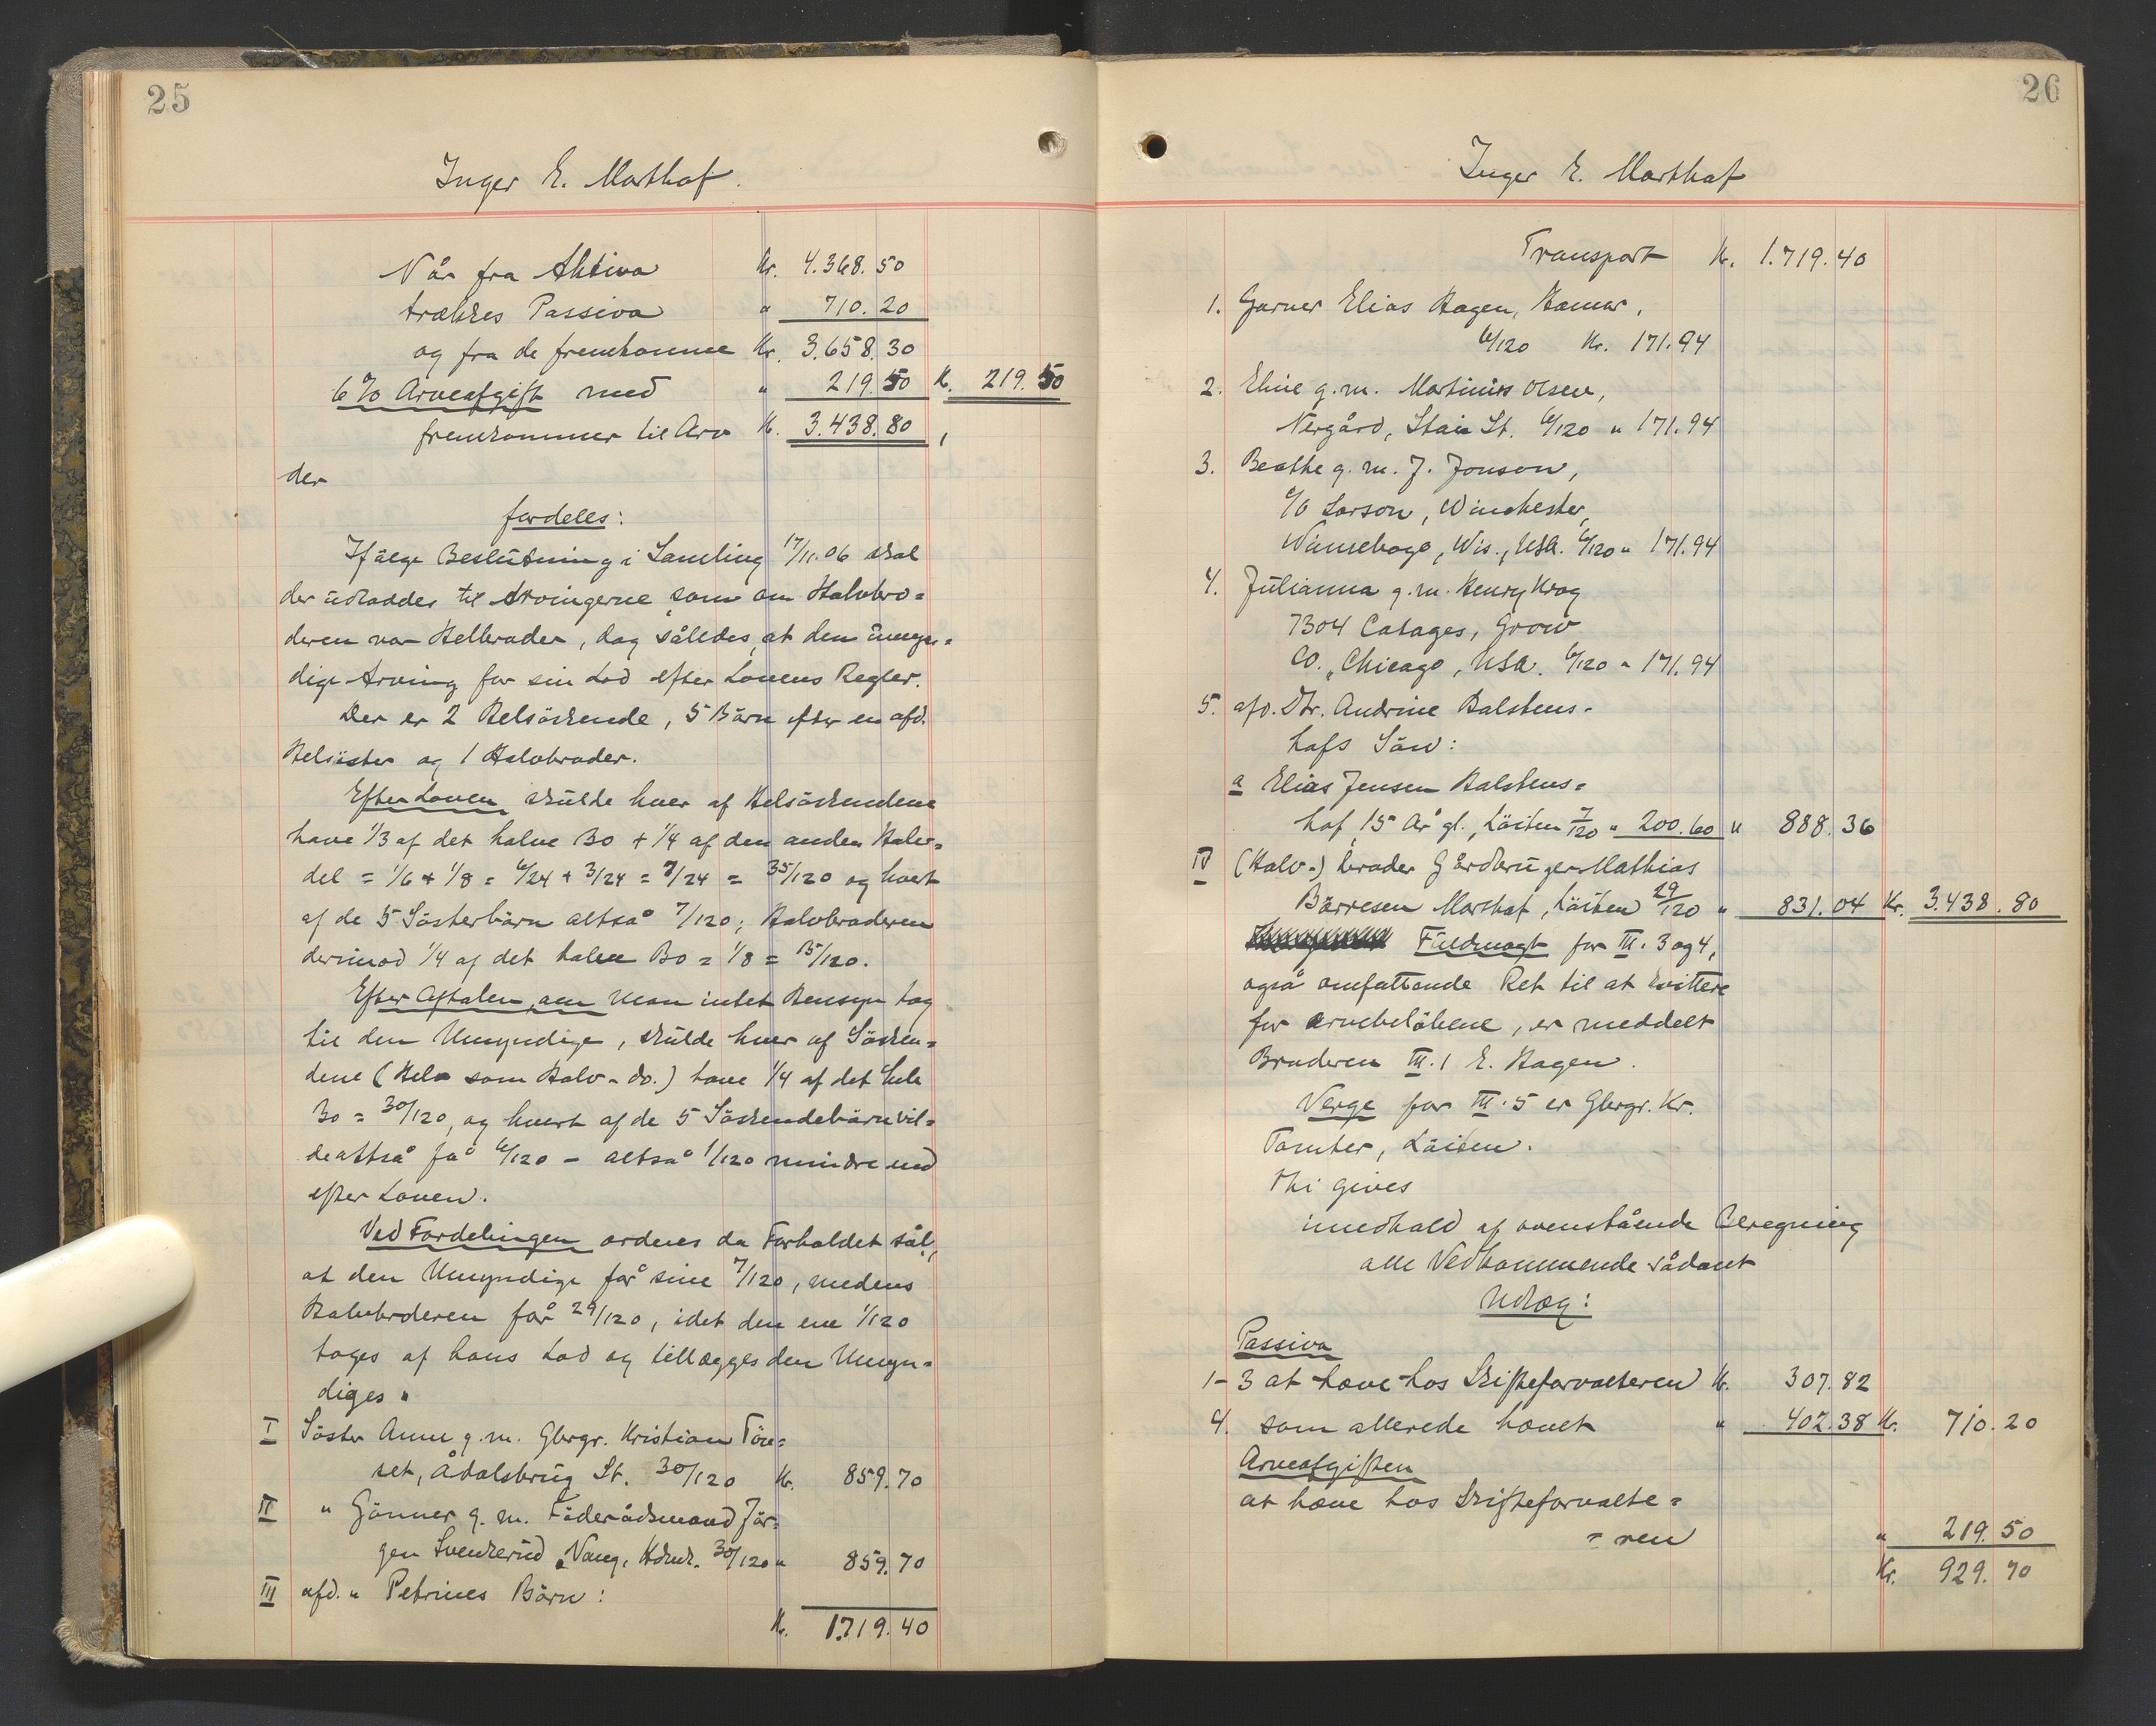 25
Inger E. Morthof.
Når fra Aktiva Kr. 4.368.50
trækkes Passiva " 710.20
og fra de fremkomne Kr. 3.658.30
6 % Arveafgift med " 219.50 K. 219.50
fremkommer til Arv K. 3.438.80,
der
fordeles:
Ifølge Beslutning i Samling 17/11.06 skal
der udloddes til Arvingerne som om Halvbro=
deren var Helbroder, dog således, at den umyn=
dige Arving får sin Lod efter Lovens Regler.
Der er 2 Helsöskende, 5 Börn efter en afd.
Helsöster og 1 Halvbroder.
Efter Loven skulde hver af Helsöskendene
have 1/3 af det halve Bo + 1/4 af den anden Halv=
del = 1/6 + 1/8 = 4/24 + 3/24 = 7/24 = 35/120 og hvert
af de 5 Sösterbörn altså 7/120; Halvbroderen
derimod 1/4 af det halve Bo = 1/8 = 15/120.
Efter Aftalen, om man intet Hensyn tog
til den Umyndige, skulde hver af Sösken=
dene (Hel- som Halv- do.) have 1/4 af det hele
Bo = 30/120, og hvert af de 5 Söskendebörn vil=
de altså få 6/120 - altså 1/120 mindre end
efter Loven.
Ved Fordelingen ordnes da Forholdet sål.,
at den Umyndige får sine 7/120, medens
Halvbroderen får 29/120, idet den ene 1/120
tages af hans Lod og tillægges den Umyn=
diges.
I Söster Anne g.m. Gbrgr. Kristian Tön=
set, Ådalsbrug St. 30/120 K. 859.70
II " Gönner g.m. Föderådsmand Jör=
gen Svenkerud, Vang, Hdmk. 30/120 " 859.70
III afd. " Petrines Börn:
K. 1.719.40
26
Inger E. Morthof
Transport K. 1.719.40
1. Garver Elias Hagen, Hamar,
6/120 Kr. 171.94
2. Eline g.m. Martinius Olsen,
Nergård, Stai St. 6/120 " 171.94
3. Beathe g.m. J. Jonson,
c/o Larson, Winchester,
Winnebago, Wis., USA. 6/120 " 171.94
4. Julianna g.m. Henry Krog
7304 Catages, Grow
Co., Chicago, USA. 6/120 " 171.94
5. afd. Dtr. Andrine Halstens=
hofs Sön:
a Elias Jensen Halstens=
hof, 15 År gl., Löiten 7/120 " 200.60 " 888.36
IV (Halv-) broder Gårdbruger Mathias
Börresen Morthof, Löiten 29/120 " 831.04 Kr. 3.438.80
Fuldmagt for III. 3 og 4,
også omfattende Ret til at kvittere
for Arvebelöbene, er meddelt
Broderen III. 1 E. Hagen.
Verge for III. 5 er Gbrgr. Kr.
Tomter, Löiten.
Thi gives
i medhold af ovenstående Beregning
alle Vedkommende sådant
Udlæg:
Passiva
1-3 at hæve hos Skifteforvalteren K. 307.82
4. som allerede hævet " 402.38 Kr. 710.20
Arveafgiften
at hæve hos Skifteforvalte=
=ren " 219.50
Kr. 929.70